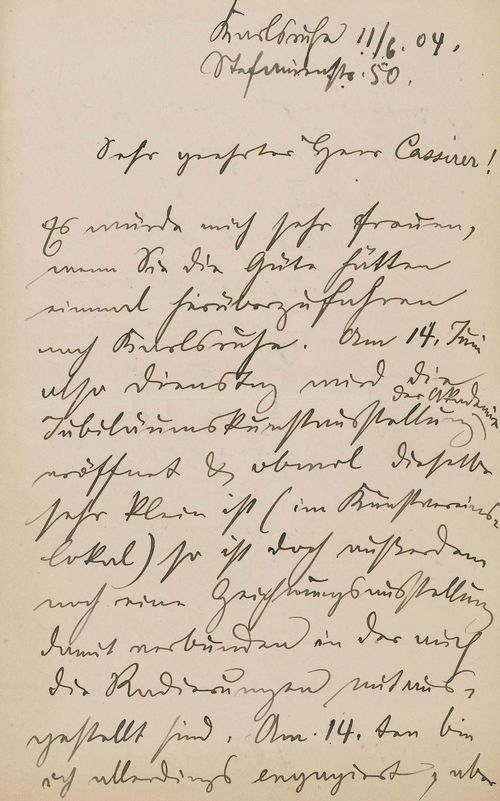 Karlsruhe 11/6. 04.
Stefanienstr. 50.
Sehr geehrter Herr Cassirer!
Es würde mich sehr freuen,
wenn Sie die Güte hätten
einmal herüberzufahren
nach Karlsruhe. Am 14. Juni
also Dienstag wird die
der Akademie
Jubiläumskunstausstellung
eröffnet & obwol dieselbe
sehr klein ist (im Kunstvereins-
lokal) so ist doch außerdem
noch eine Zeichnungsausstellung
damit verbunden in der auch
die Radierungen mitaus-
gestellt sind. Am 14. ten bin
ich allerdings engagiert, aber